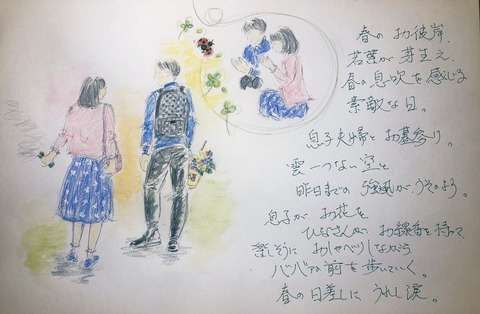 春の お彼岸、
若葉が 芽生え、
春の息吹を感じる
素敵な日。
息子夫婦と お墓参り。
雲一つない空と
昨日までの 強風が うそのよう。
息子が お花を
ひなさんが お線香を 持って、
楽しそうに おしゃべりしながら
ババアの前を 歩いていく。
春の日差しに うれし涙。